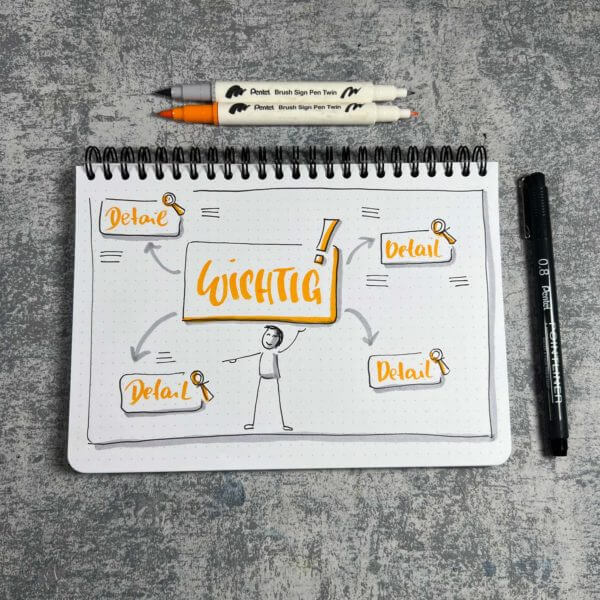 Pentel Brush Sign Pen Twin
Pentel Brush Sign Pen Twin
Detail
Detail
WICHTIG!
Detail
Detail
0.8 Pentel POINTLINER